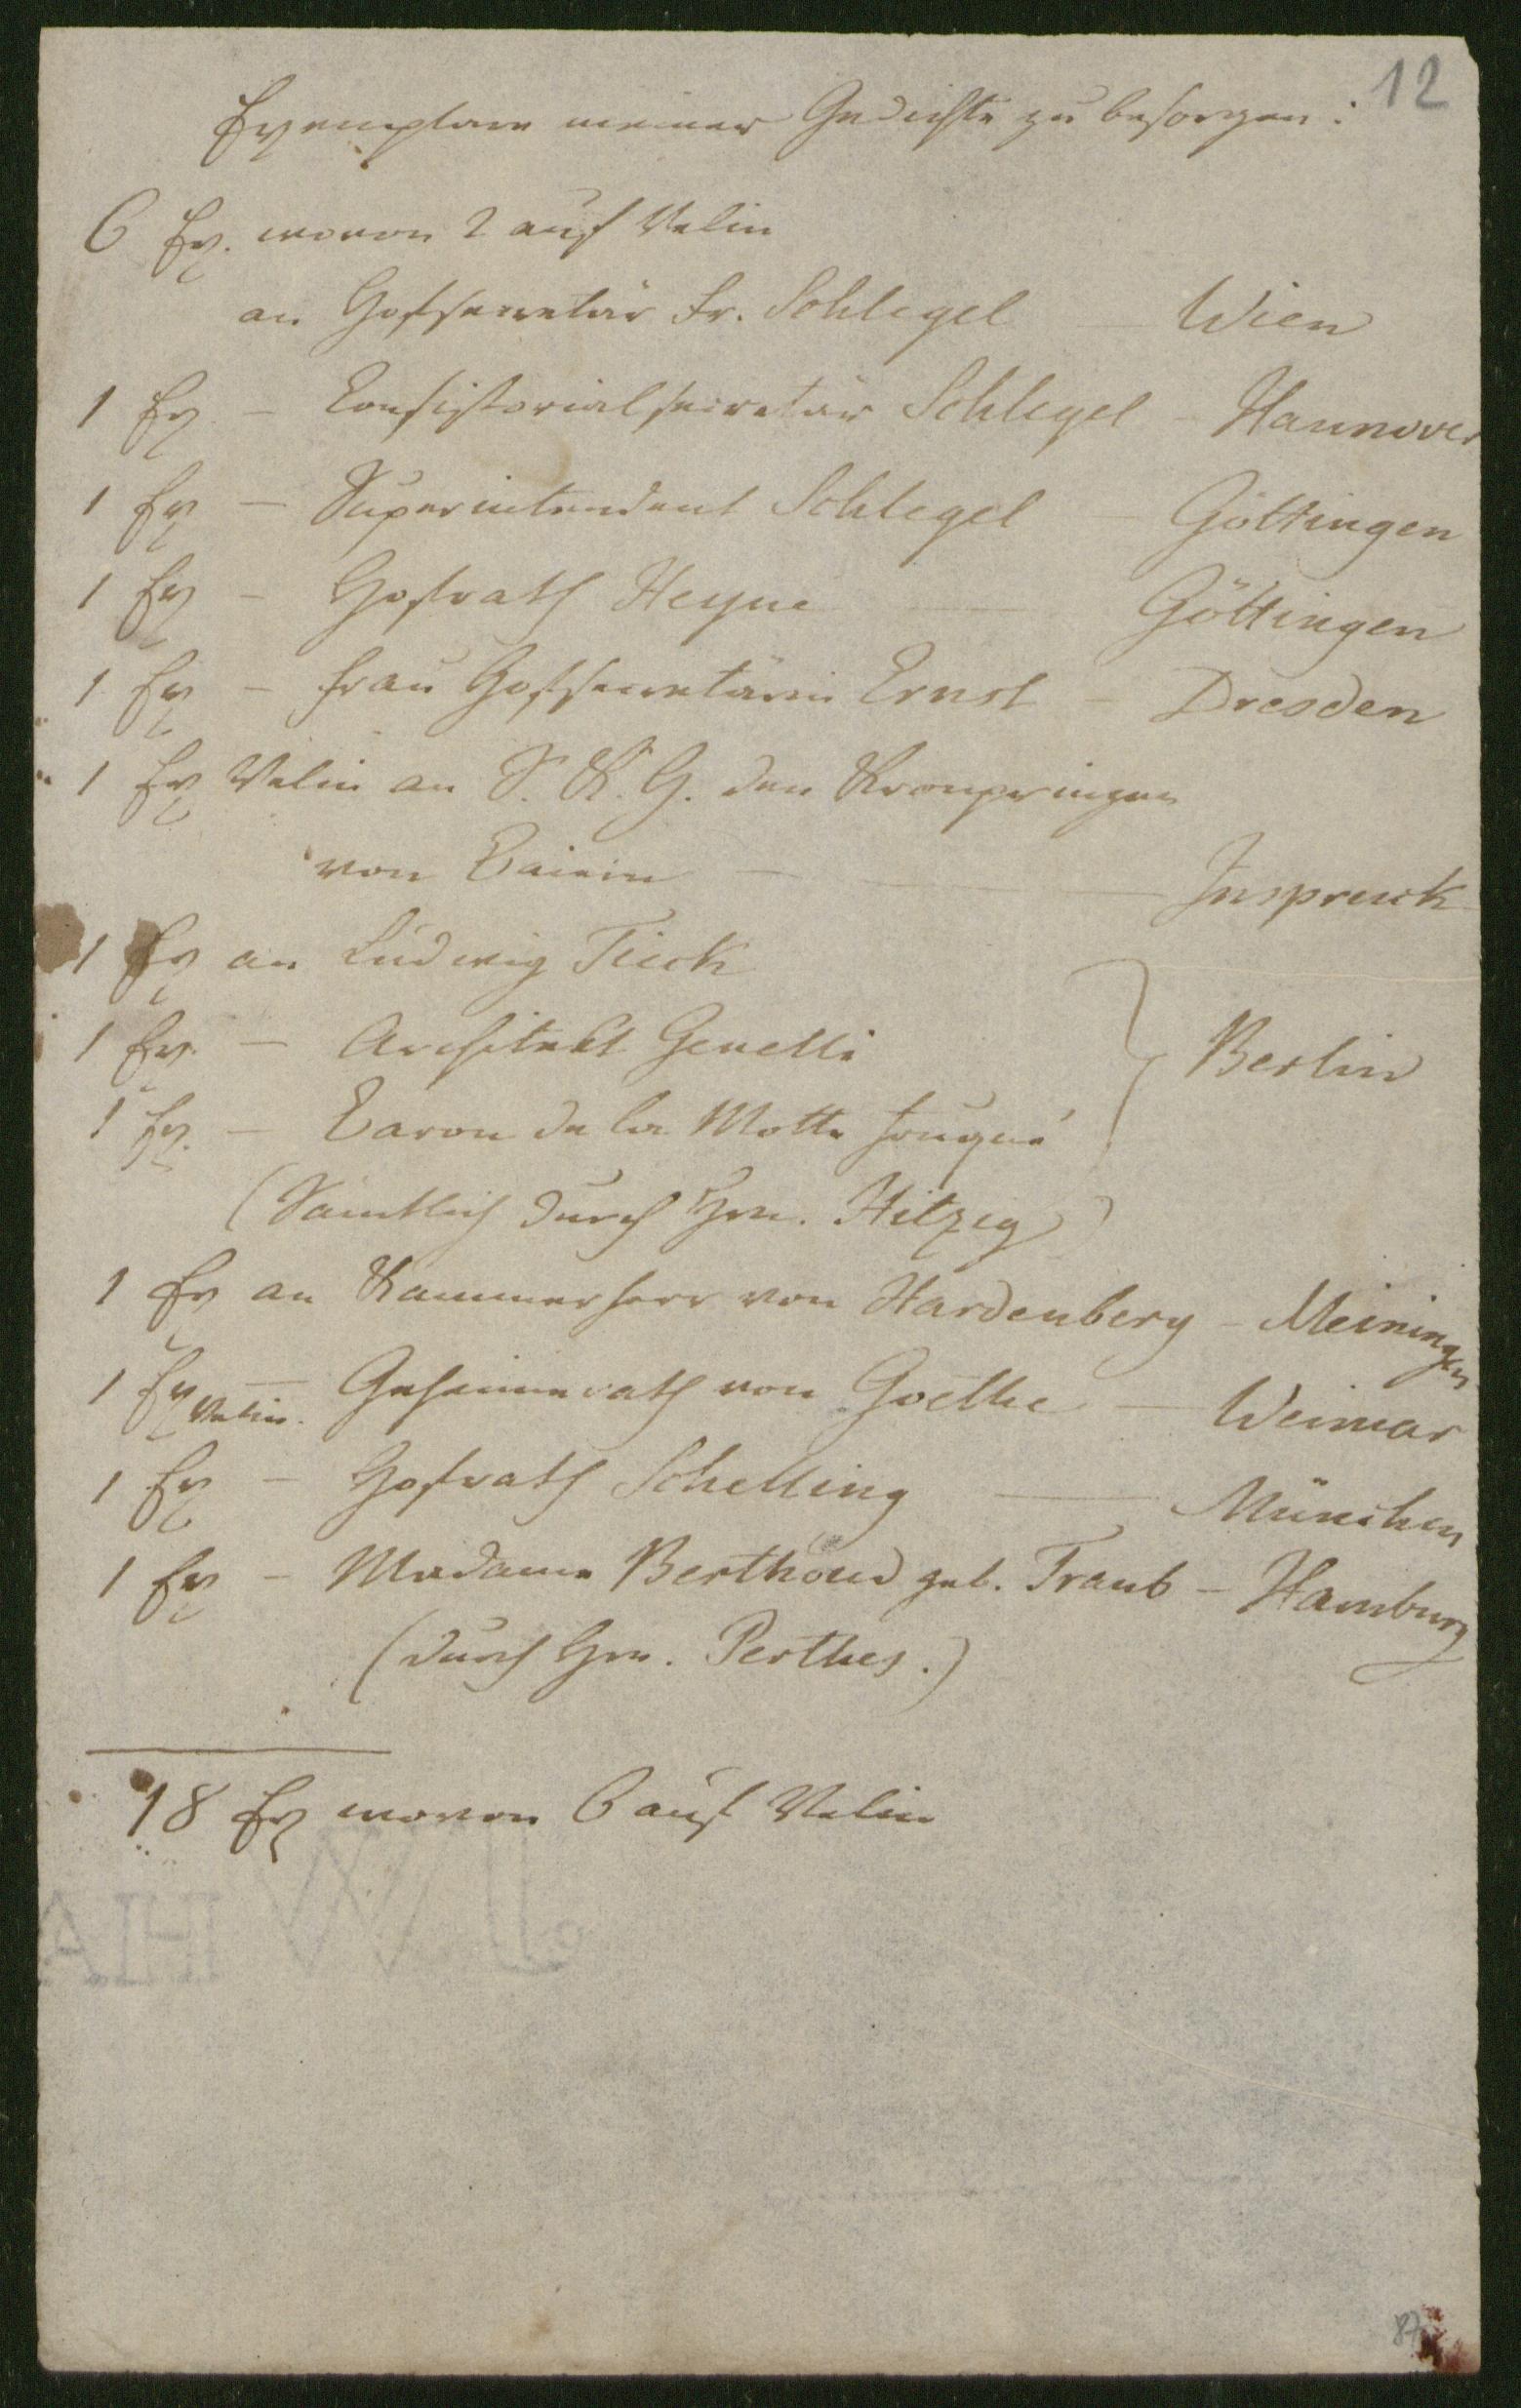 12
Exemplare meiner Gedichte zu besorgen:
6 Ex. wovon 2 auf Velin
an Hofsecretär Fr. Schlegel — Wien
1 Ex — Consistorialsecretär Schlegel — Hannover
1 Ex — Superintendent Schlegel — Göttingen
1 Ex — Hofrath Heyne — Göttingen
1 Ex — Frau Hofsecretärin Ernst — Dresden
1 Ex Velin an S. K. H. den Kronprinzen
von Baiern — — — Inspruck
1 Ex an Ludwig Tieck
1 Ex. — Architekt Genelli } Berlin
1 Ex. — Baron de la Motte Fouqué
(Sämtlich durch Hrn. Hitzig)
1 Ex an Kammerherr von Hardenberg — Meiningen
1 Ex Velin. — Geheimerath von Goethe — Weimar
1 Ex — Hofrath Schelling — München
1 Ex — Madame Berthoud geb. Traub — Hamburg
(durch Hrn. Perthes.)
18 Ex wovon 6 auf Velin
87